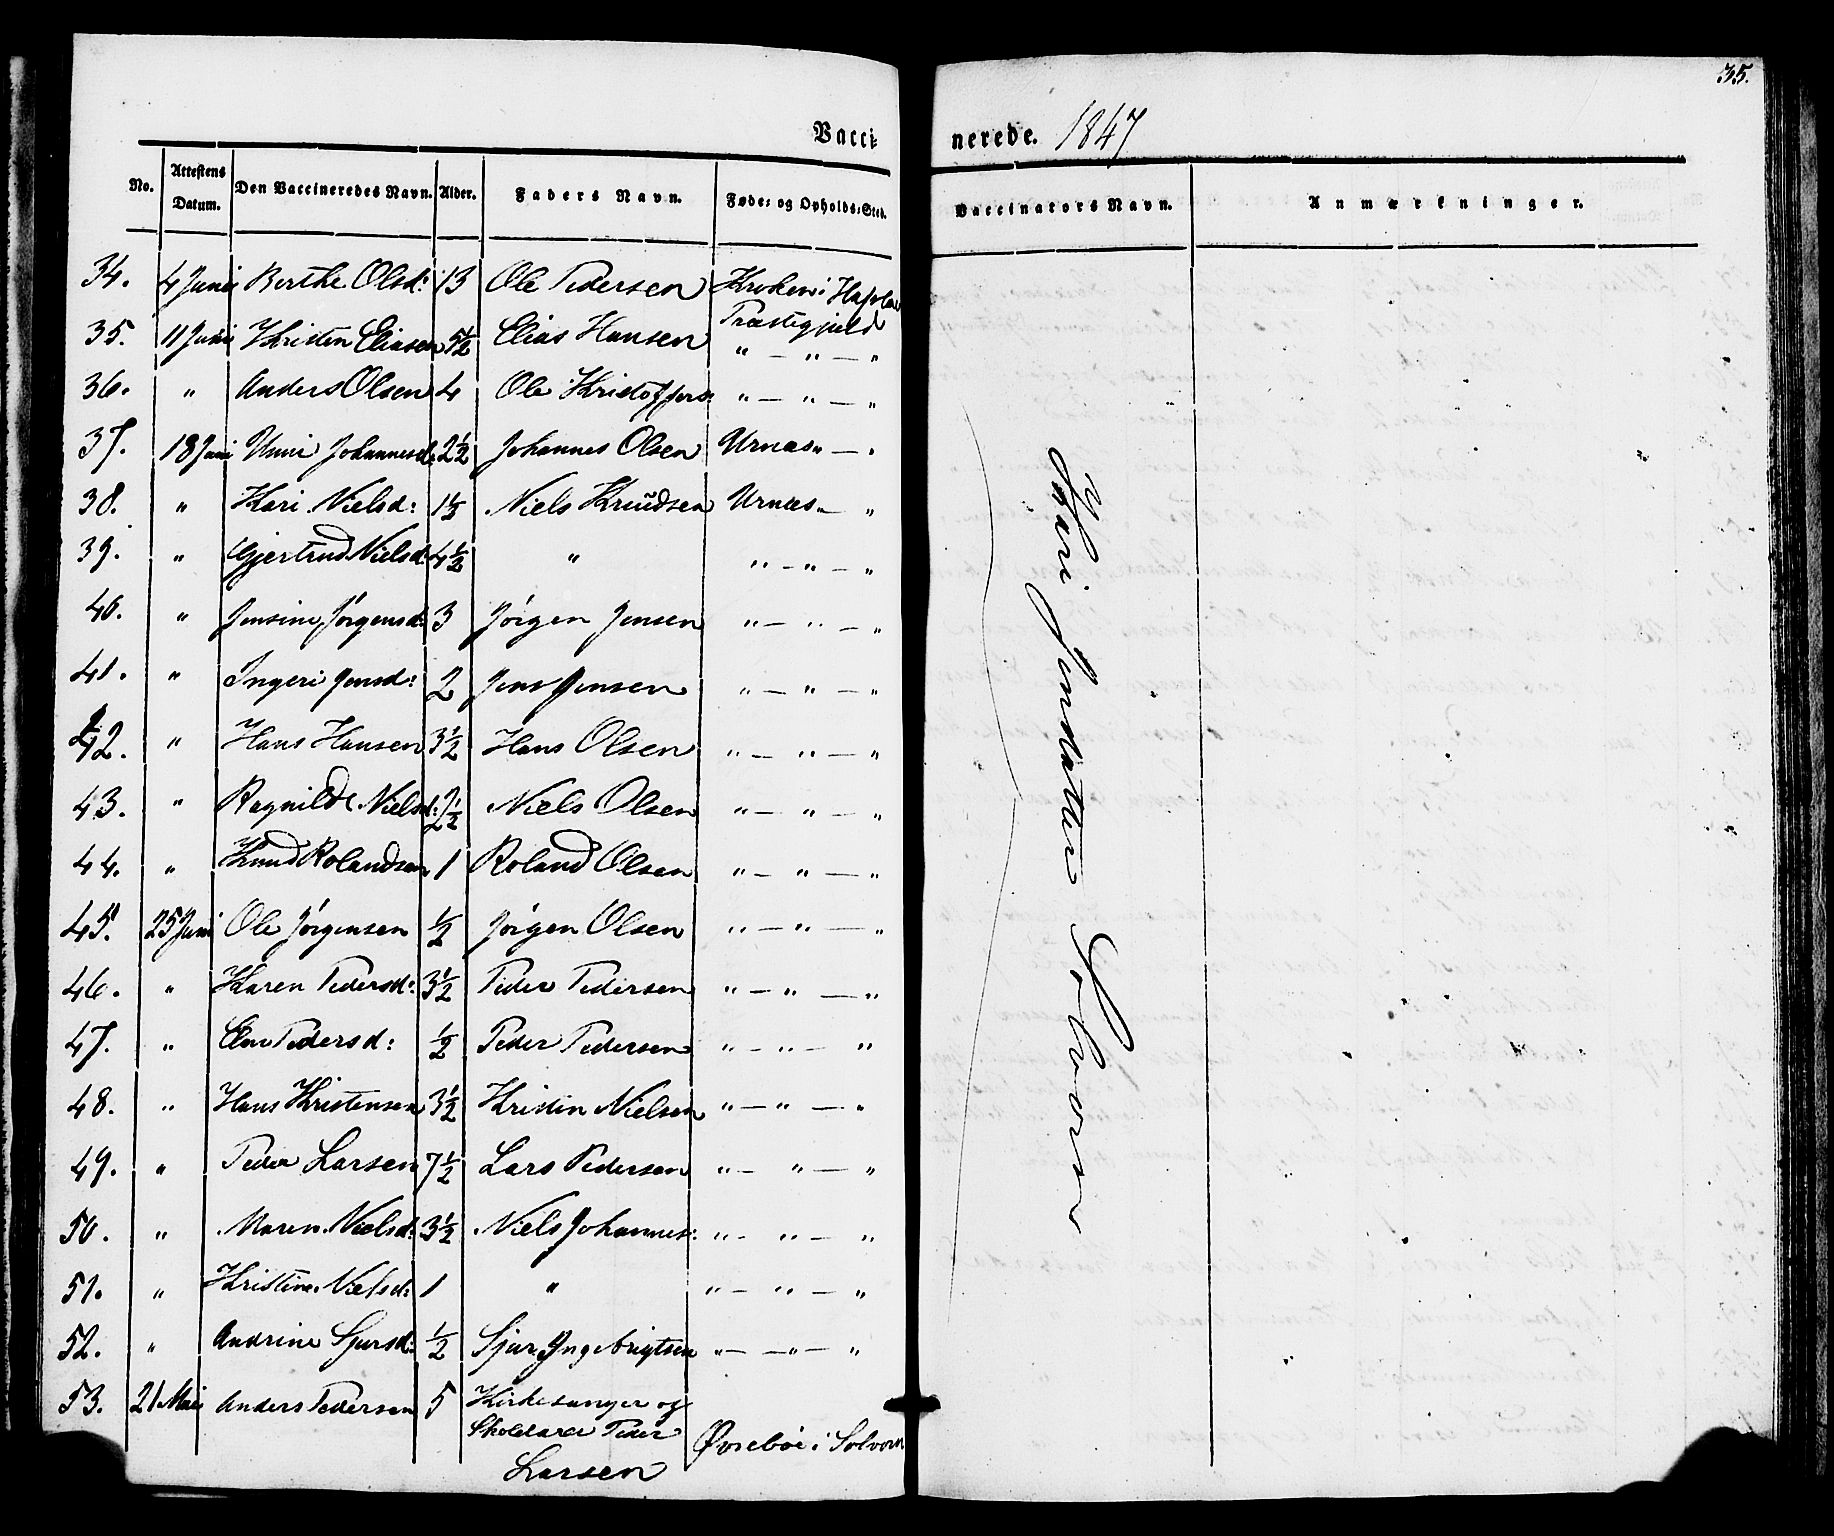 35.
Vacci- nerede. 1847
No. Attestens Datum. Den Vaccineredes Navn. Alder. Faders Navn. Føde- og Opholds-Sted. Vaccinators Navn. Anmærkninger.
34. 4 Juni Berthe Olsd: 13 Ole Pedersen Kroken i Hafslo
Præstegjeld
35. 11 Juni Khristen Eliasen 5½ Elias Hansen " — " — "
36. " Anders Olsen 4 Ole Khristoffers: " — " — "
37. 18 Juni Unni Johannesd: 2½ Johannes Olsen Urnæs " — "
38. " Kari Nielsd: 1½ Niels Knudsen Urnæs " — "
39. " Gjertrud Nielsd: 4½ " " — " — "
40. " Jensine Jørgensd: 3 Jørgen Jensen " — " — "
41. " Ingeri Jensd: 2 Jens Jensen " — " — "
42. " Hans Hansen 3½ Hans Olsen " — " — "
43. " Ragnilde Nielsd: 2½ Niels Olsen " — " — "
44. " Knud Rolandsen 1 Roland Olsen " — " — "
45. 25 Juni Ole Jørgensen ½ Jørgen Olsen " — " — "
46. " Karen Pedersd: 3½ Peder Pedersen " — " — "
47. " Pedersd: ½ Peder Pedersen " — " — "
48. " Hans Khristensen 3½ Khristen Nielsen " — " — "
49. " Peder Larsen 7½ Lars Pedersen " — " — "
50. " Maren Nielsd: 3½ Niels Johannes: " — " — "
51. " Khristine Nielsd: 1 " " — " — "
52. " Andrine Sjursd: ½ Sjur Yngebrigtsen " — " — "
53. 21 Mai Anders Pedersen 5 Kirkesanger og
Skolelærer Peder
Larsen Øvrebøe i Solvorn
Kari Jensdatter Solvorn